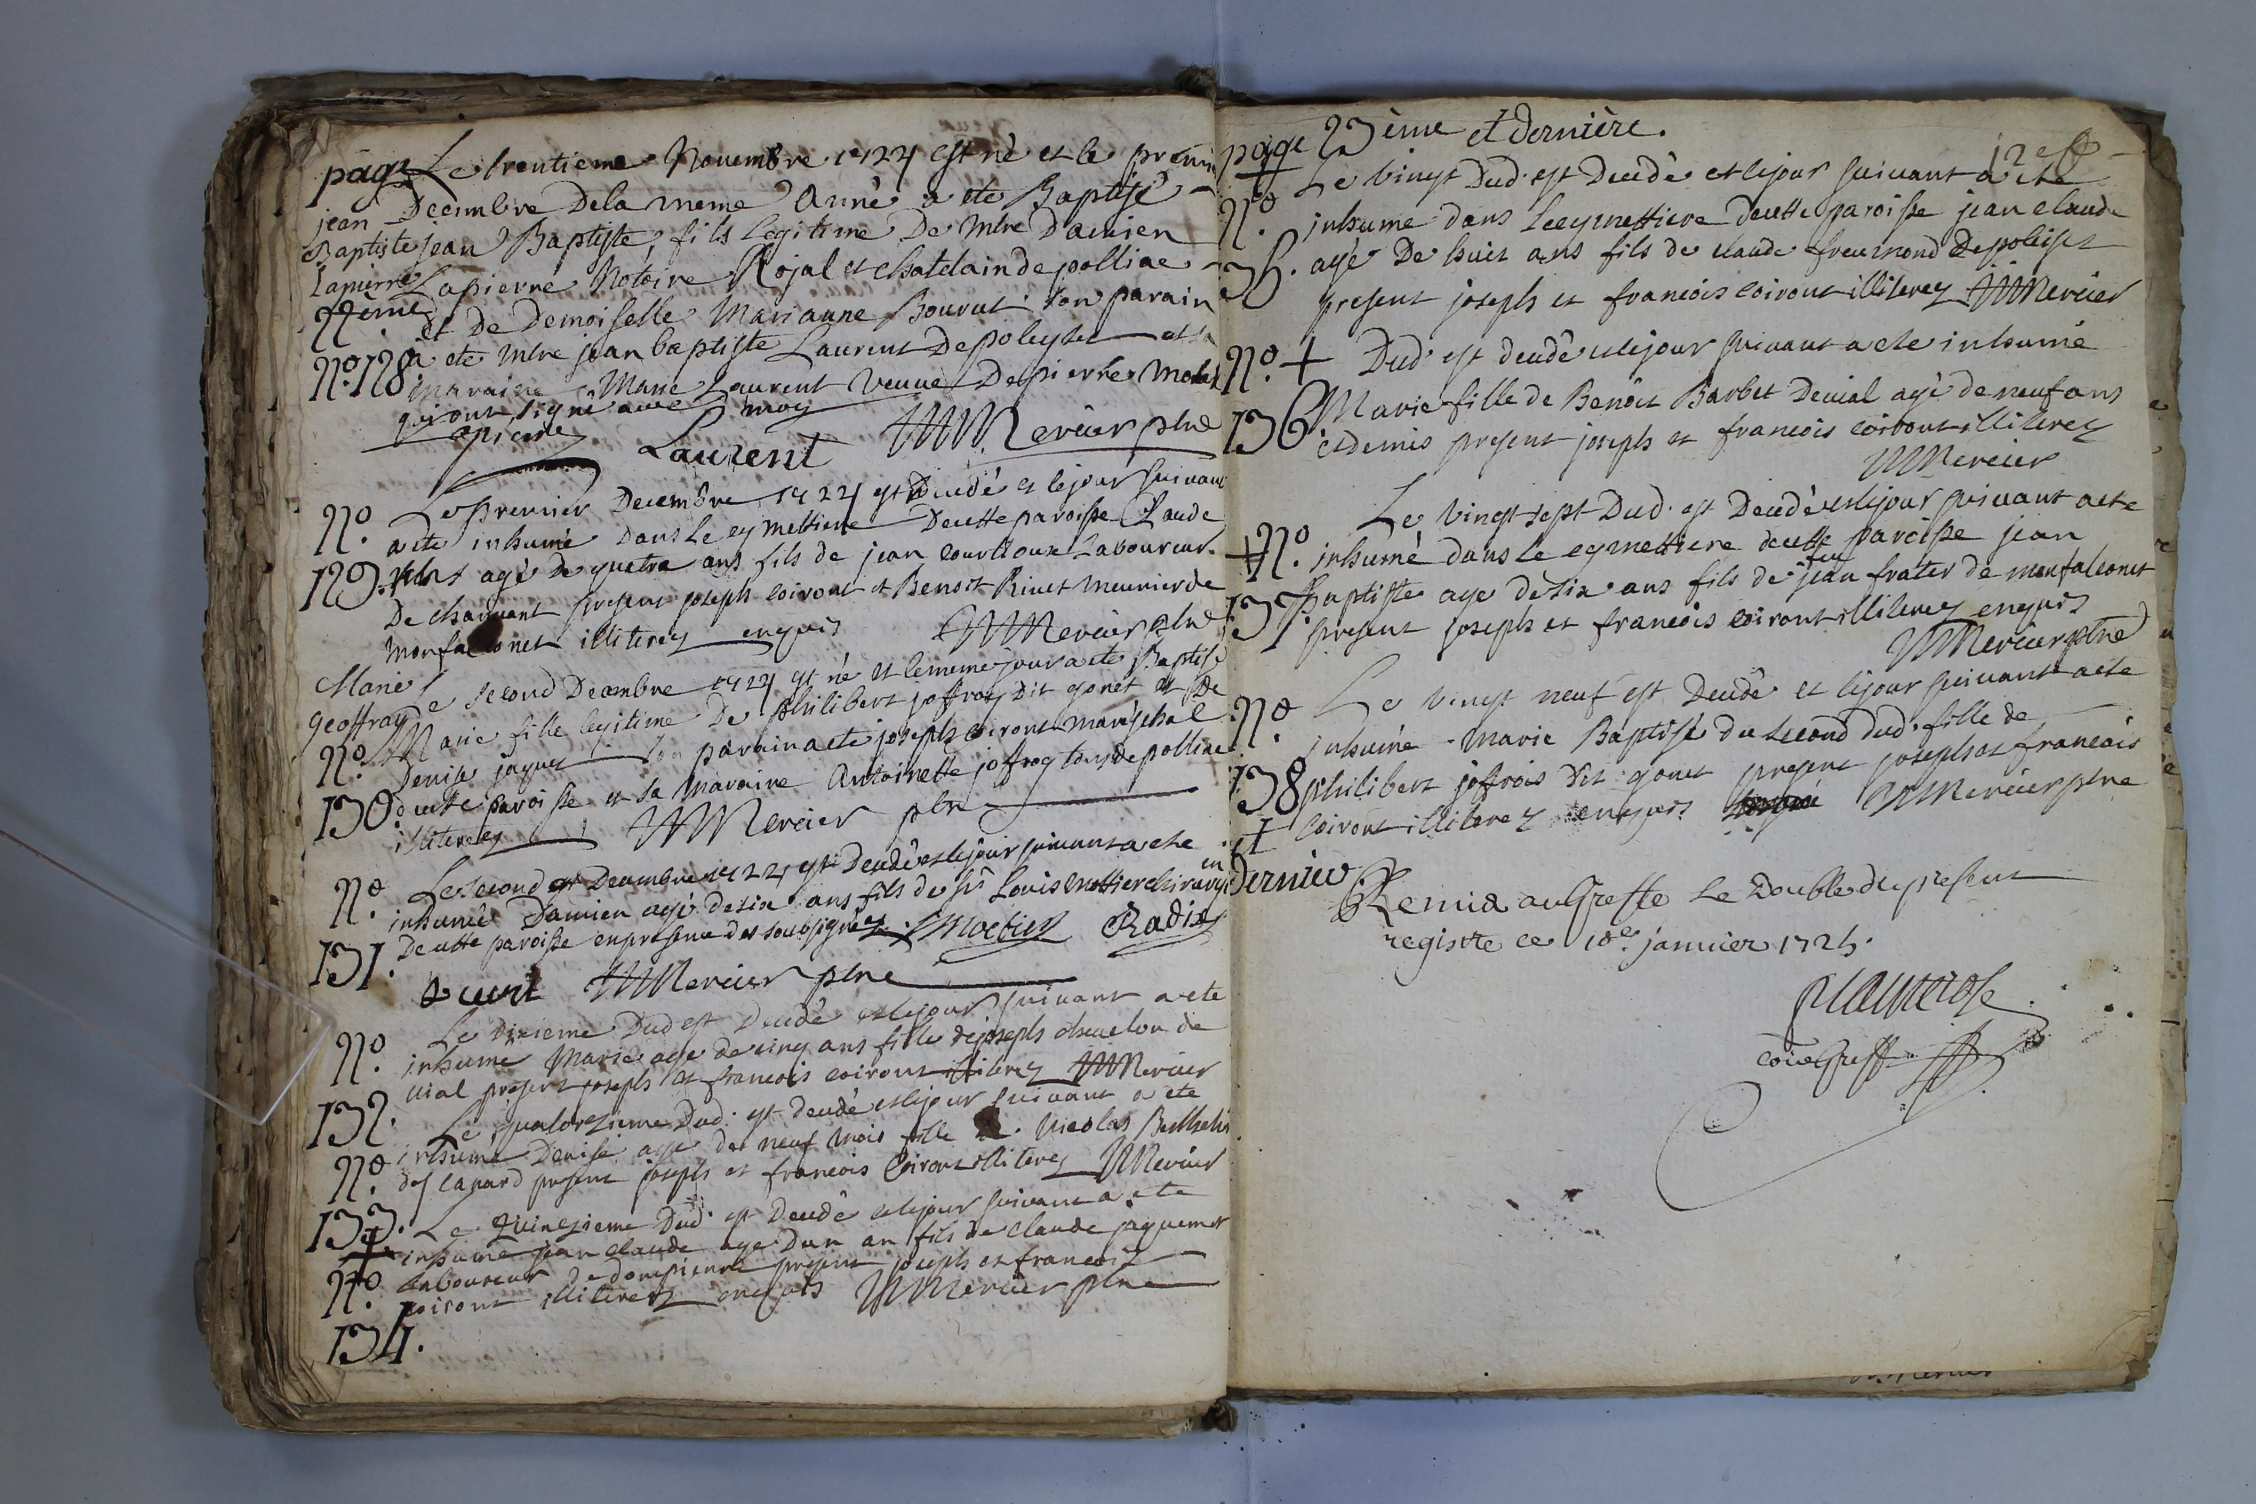 page Le trentieme Novembre 1724 est né et le premier
jean Decembre Dela meme Anné a ete Baptisé
Baptiste jean Baptiste, fils legitime De mtre Damien
Lapierre Lapierre Notaire Rojal et chatelain de polliac
22ème et De Demoiselle Marianne Bourut son parain
No. 128 a ete mtre jean baptiste Laurent De poleyset et sa
maraine Marie Laurent veuve De pierre
qui ont signé avec moy
Lapierre Laurent Mercier ptre
No. Le premier Decembre 1724 est Decudé et le jour suivant
a ete inhumé dans le cymettiere De cette paroisse Claude
129. agé de quatre ans fils de jean courtioux Laboureur
De charnant present joseph coiront et Benoit Rivet meunier de
monfalconet illiterez enquis Mercier ptre
Marie Le second Decembre 1724 est né et le meme jour a ete Baptisé
geoffray Marie fille legitime De philibert joffray Dit gonet et De
No. Denise jaquet son parain a ete joseph coiront maréchal
130. de cette paroisse et sa maraine Antoinette joffray tous de polliac
illiterez Mercier ptre
No. Le second Decembre 1724 est Decudé et le jour suivant a ete
inhumé Damien agé de six ans fils de sr Louis mottier chirurgien
131. De cette paroisse en presence des soubsignéz Mottier Radix
Mercier ptre
No. Le Dixieme Dud est Decudé et le jour suivant a ete
inhumé Marie agé de cinq ans fille de joseph chevelon de
132. vial present joseph et francois coiront illiterez Mercier
Le quatorzieme Dud. est decudé et le jour suivant a ete
No. inhumé Denise agé de neuf mois fille de Nicolas
133. des capard present joseph et francois Coiront illiterez Mercier
Le Quinzieme Dud. est Decudé et le jour suivant a ete
inhumé jean claude agé Dun an fils de claude jaquemet
No. Laboureur de dompierre present joseph et francois
coiront illiterez enquis Mercier ptre
134.
page 23ème et dernière.
12e
Le vingt Dud. est Decudé et le jour suivant a ete
No. inhumé dans Le cymettiere de cette paroisse jean claude
agé De huit ans fils de claude freumond De poleiset
present joseph et francois coiront illiterez Mercier
No. + Dud est decudé et le jour suivant a ete inhumé
136 Marie fille de Benoit Barbet De vial agé de neuf ans
et demis present joseph et francois coiront illiterez
Mercier
Le vingt sept Dud. est Decudé et le jour suivant a ete
+No. inhumé dans le cymettiere de cette paroisse jean
137. Baptiste agé de six ans fils de feu jean frater de monfalconet
present joseph et francois coiront illiterez enquis
Mercier ptre
Le vingt neuf est Decudé et le jour suivant a ete
No. inhumé Marie Baptisé du second dud. fille de
138 philibert joffrois dit gonet present joseph et francois
+ coiront illiterez enquis Mercier ptre
dernier
Remis au Greffe Le Double du present
registre ce 18e janvier 1725.